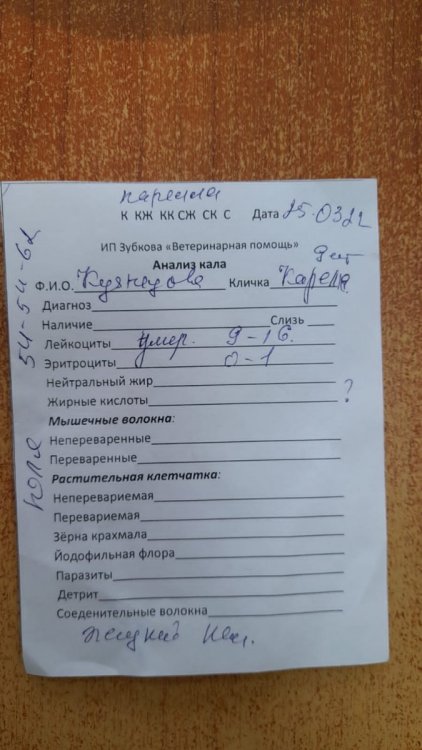 карелла
К КЖ КК СЖ СК С Дата 25.03.22
ИП Зубкова «Ветеринарная помощь»
Анализ кала
Ф.И.О. Кузнецова Кличка
Диагноз
Наличие Слизь
Лейкоциты умер. 9-16.
Эритроциты 0-1
Нейтральный жир
Жирные кислоты ?
Мышечные волокна:
Непереваренные
Переваренные
Растительная клетчатка:
Неперевариемая
Перевариемая
Зёрна крахмала
Йодофильная флора
Паразиты
Детрит
Соеденительные волокна
жидкий кал.
Юлия 54-54-62